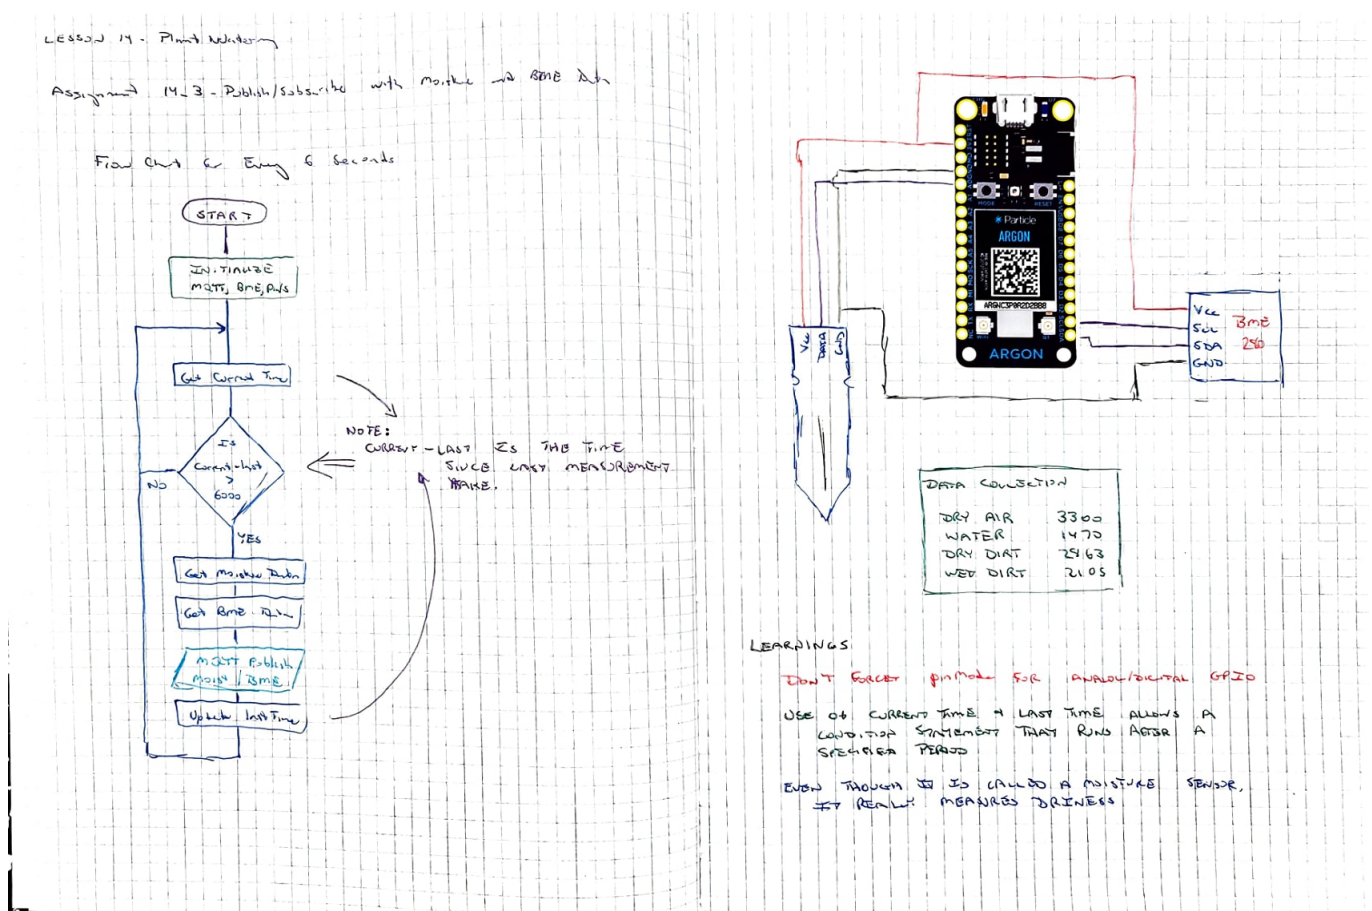 LESSON 14 - Plant Watering
Assignment 14_3 - Publish/Subscribe with Moisture and BME Data
Flow Chart for Every 6 Seconds
START
INITIALIZE
MQTT, BME, PINS
Get Current Time
IS
Current-last
>
6000
NO
YES
Get Moisture Data
Get BME Data
MQTT Publish
Moist / BME
Update last Time
NOTE:
CURRENT-LAST IS THE TIME
SINCE LAST MEASUREMENT
Particle
ARGON
MODE
RESET
ARGON
Vcc
DATA
GND
Vcc
SCL
SDA
GND
BME
280
DATA COLLECTION
DRY AIR 3300
WATER 1470
DRY DIRT
WET DIRT 2105
LEARNINGS
DON'T FORGET pinMode FOR ANALOG/DIGITAL GPIO
USE OF CURRENT TIME & LAST TIME ALLOWS A
CONDITION STATEMENT THAT RUNS AFTER A
SPECIFIED PERIOD
EVEN THOUGH IT IS CALLED A MOISTURE SENSOR,
IT REALLY MEASURES DRINESS